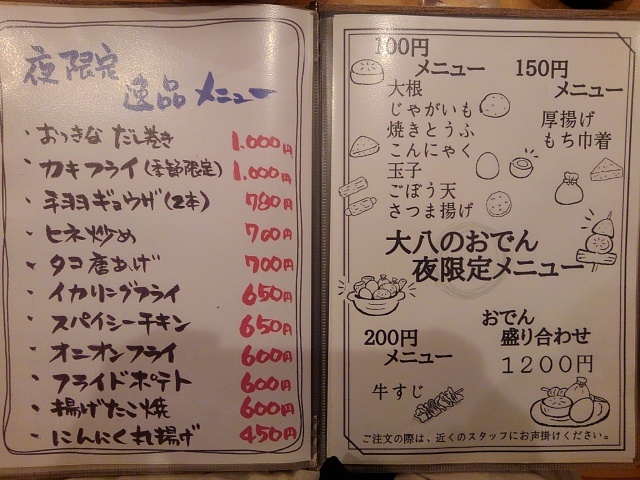 夜限定
逸品メニュー
・おっきなだし巻き 1.000円
・カキフライ(季節限定) 1.000円
・手羽ギョウザ(2本) 780円
・ヒネ炒め 700円
・タコ唐あげ 700円
・イカリングフライ 650円
・スパイシーチキン 650円
・オニオンフライ 600円
・フライドポテト 600円
・揚げたこ焼 600円
・にんにく丸揚げ 450円
100円
メニュー
大根
じゃがいも
焼きとうふ
こんにゃく
玉子
ごぼう天
さつま揚げ
150円
メニュー
厚揚げ
もち巾着
大八のおでん
夜限定メニュー
200円
メニュー
牛すじ
おでん
盛り合わせ
1200円
ご注文の際は、近くのスタッフにお声掛けください。